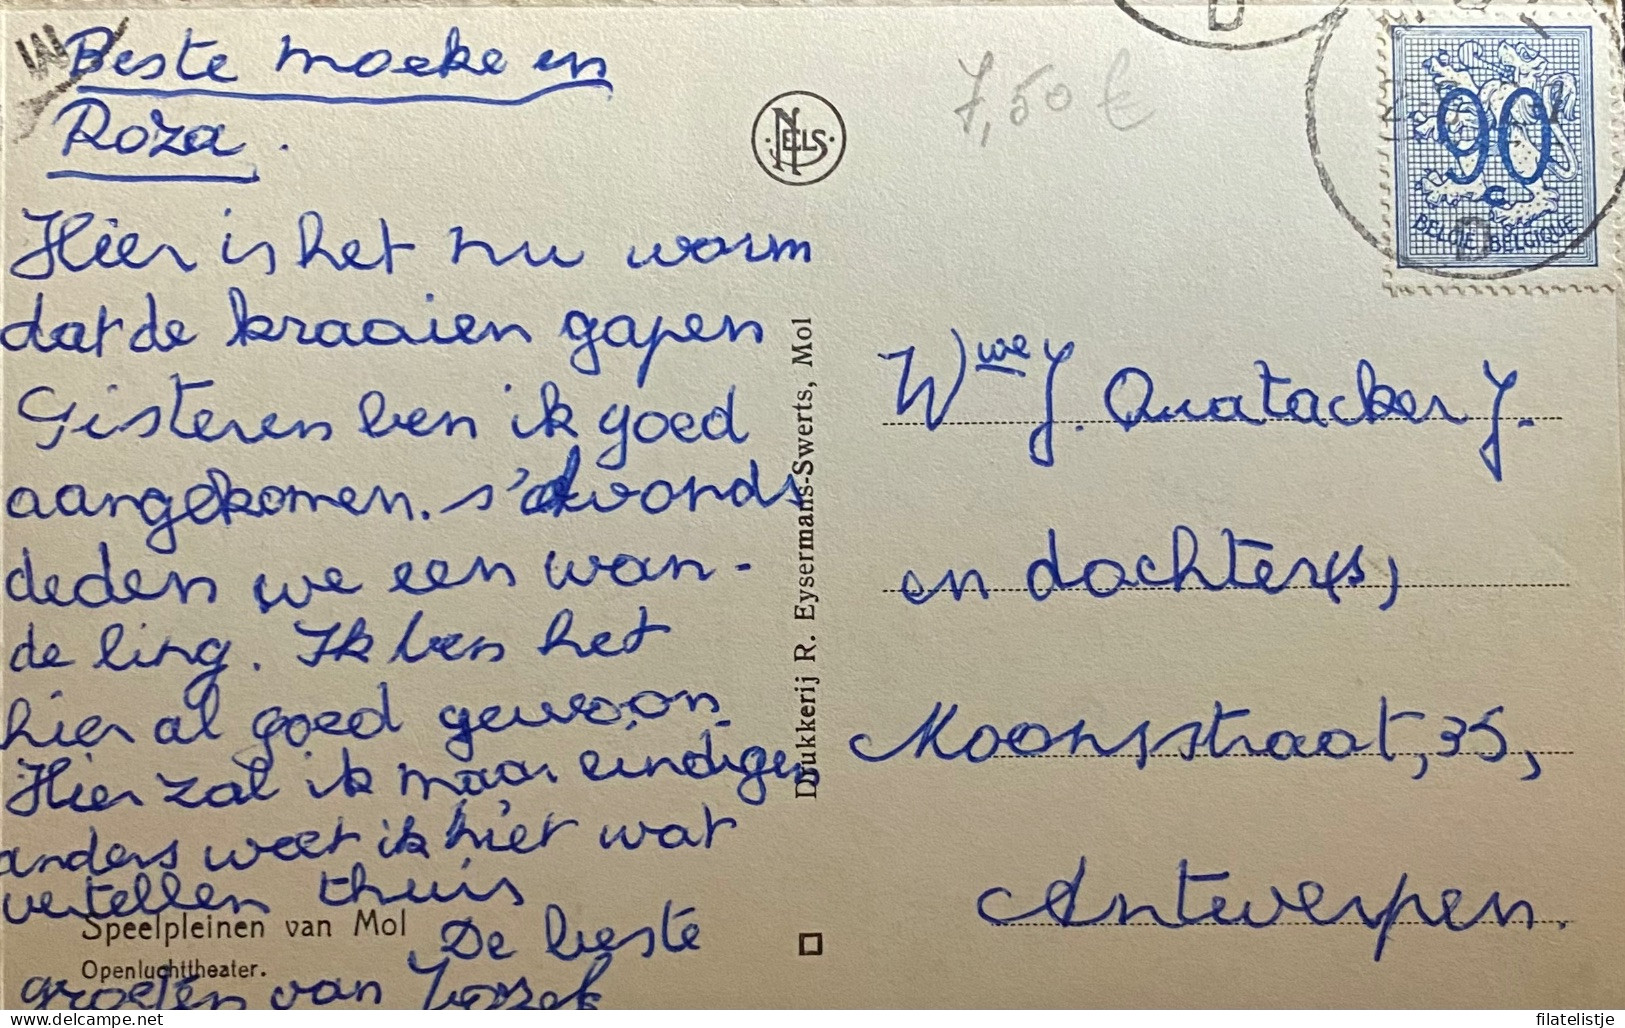 Beste moeke en
Roza.
Hier is het nu warm
dat de kraaien gapen
Gisteren ben ik goed
aangekomen. s'avonds
deden we een wan-
deling. Ik ben het
hier al goed gewoon.
Hier zal ik maar eindigen
anders weet ik niet wat
vertellen thuis
De beste
groeten van
Speelpleinen van Mol
Openluchttheater.
NELS
Drukkerij R. Eysermans-Swerts, Mol
7,50 €
90
c
BELGIE BELGIQUE
D
Wwe J. Quatacker J.
en dochter(s)
Moonsstraat, 35,
Antwerpen.
filatelistje
© delcampe.net